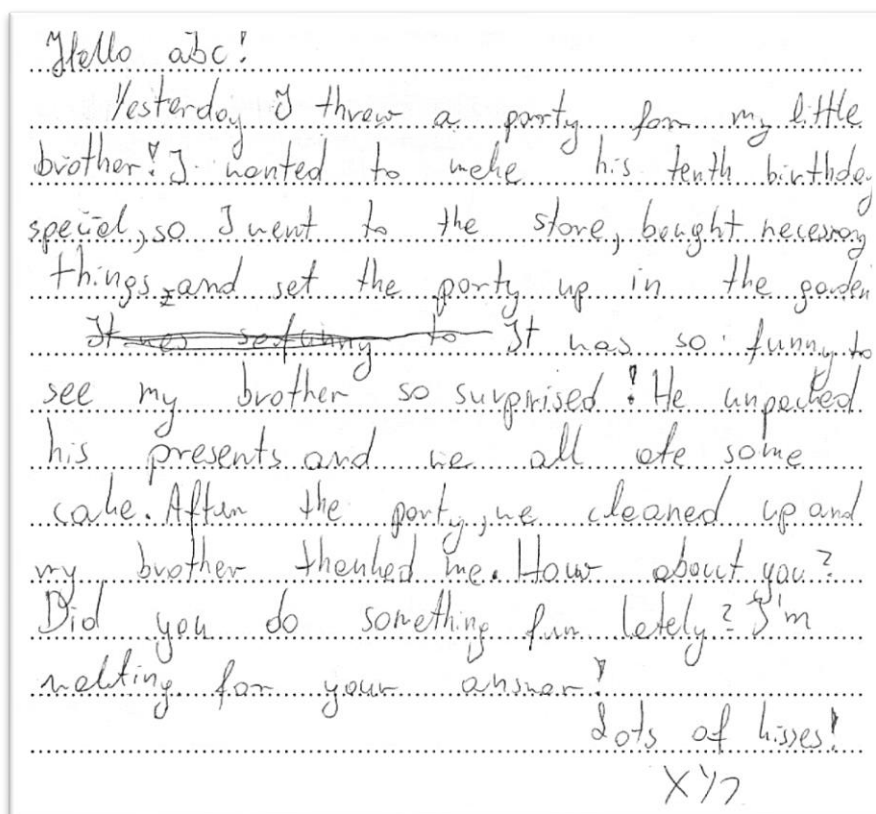 Hello abc!
Yesterday I threw a party for my little
brother! I wanted to make his tenth birthday
special, so I went to the store, bought necessary
things, and set the party up in the garden
It was so funny to It was so funny to
see my brother so surprised! He unpacked
his presents and we all ate some
cake. After the party, we cleaned up and
my brother thanked me. How about you?
Did you do something fun lately? I'm
waiting for your answer!
Lots of kisses!
XYZ